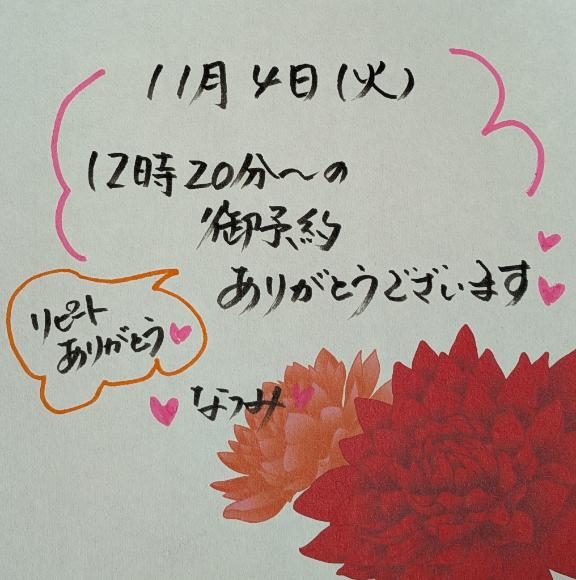 11月4日(火)
12時20分〜の
御予約
ありがとうございます
リピート
ありがとう
なつみ